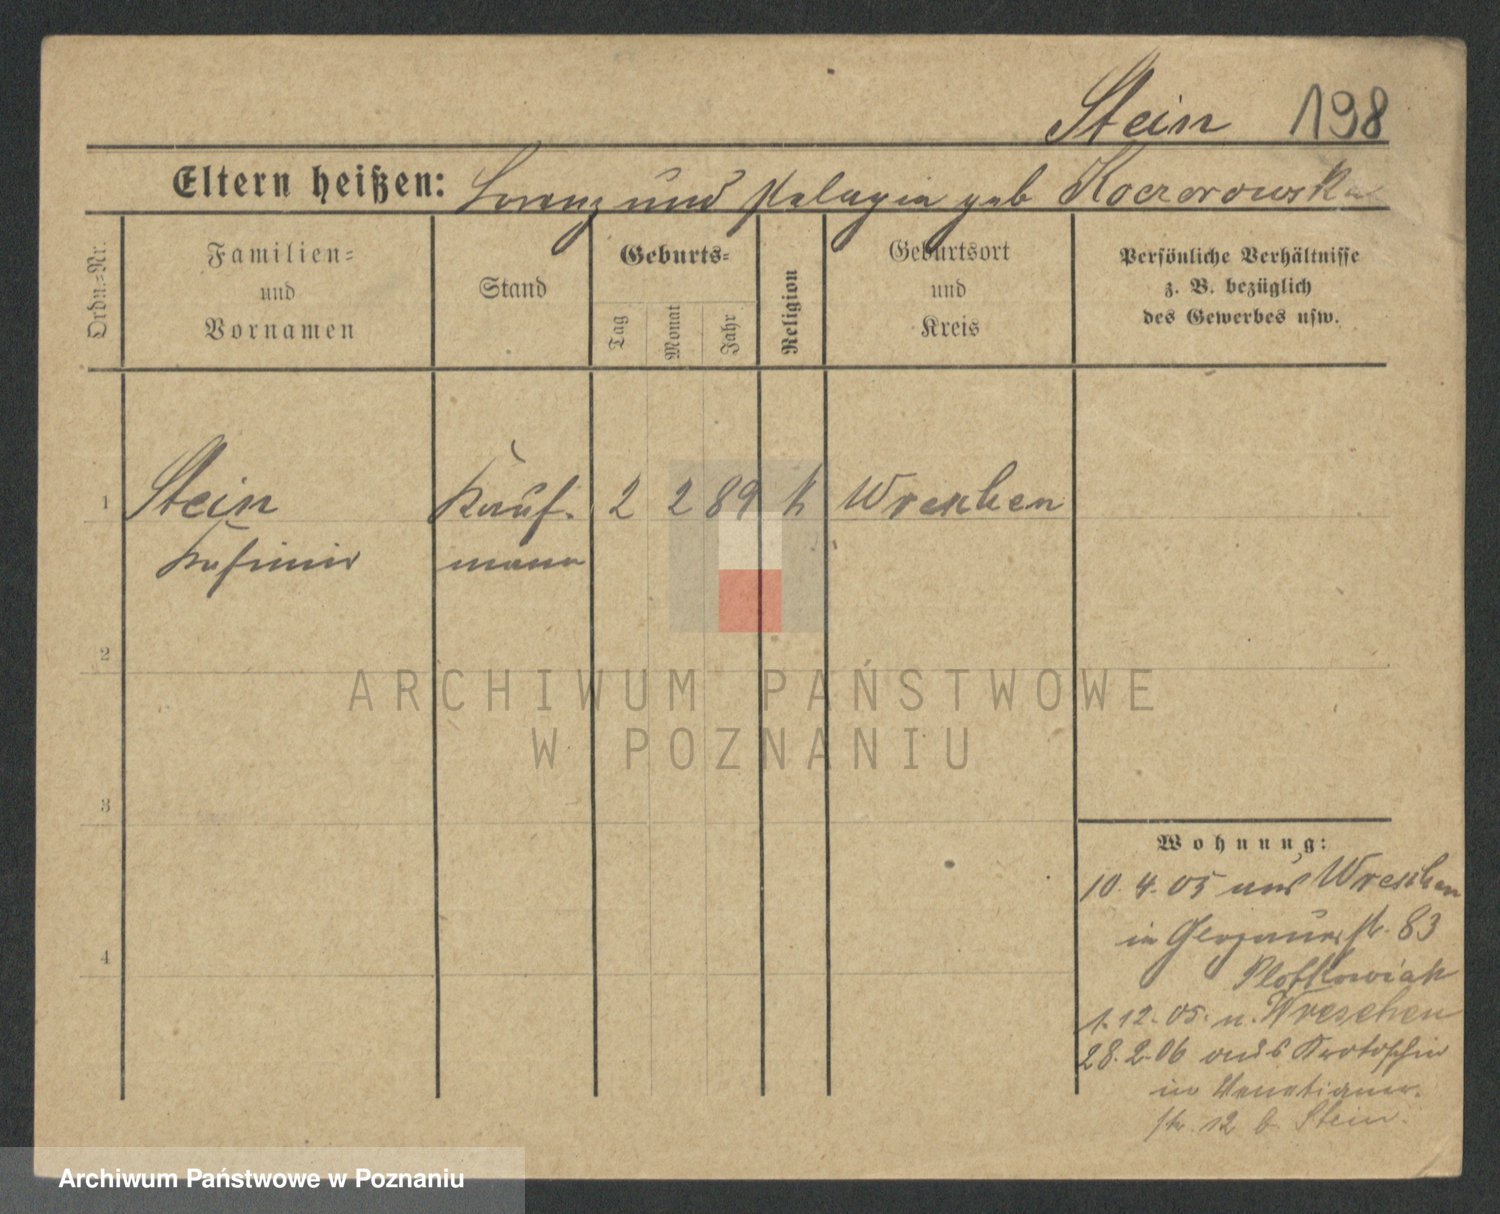 Stein 198
Eltern heißen: Lorenz und Pelagia geb Koczorowska
Ordn.-Nr.
Familien- und Vornamen
Stand
Geburts-
Tag
Monat
Jahr
Religion
Geburtsort und Kreis
Persönliche Verhältnisse
z. B. bezüglich
des Gewerbes usw.
1 Stein Kauf- 2 2 89 k Wreschen
Kasimir mann
2
3
4
Wohnung:
10. 4. 05 aus Wreschen
in Glogauer str. 83
Plotkowiak
1. 12. 05. n. Wreschen
28. 2. 06 aus Krotoschin
in Venetianer-
str. 12 b. Stein.
ARCHIWUM PAŃSTWOWE
W POZNANIU
Archiwum Państwowe w Poznaniu